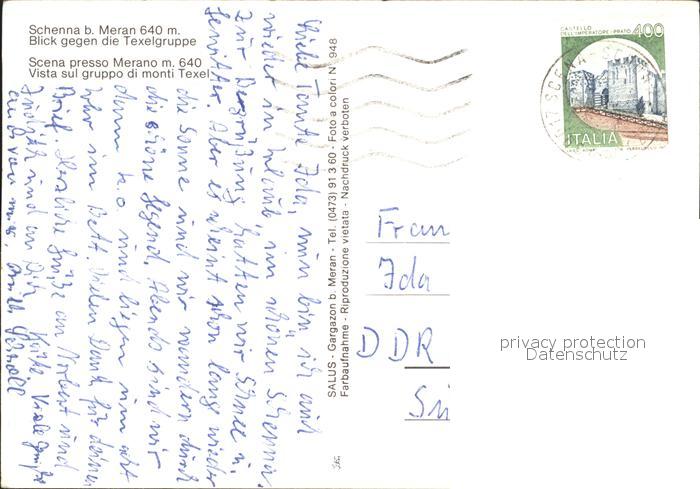 Schenna b. Meran 640 m.
Blick gegen die Texelgruppe
Scena presso Merano m. 640
Vista sul gruppo di monti Texel
Liebe Tante Ida, nun bin ich auch
wieder in Urlaub, im schönen Schenna.
Zur Begrüßung hatten wir Schnee u.
Gewitter. Aber es scheint schon lange wieder
die Sonne und wir wandern durch
die schöne Gegend. Abends sind wir
dann k.o. und liegen um acht
Uhr im Bett. Vielen Dank für deinen
Brief. Herzliche Grüße an Norbert und
Judith und an Dich Viele Grüße
auch von
SALUS - Gargazon b. Meran - Tel. (0473) 91 3 60 - Foto a colori N° 948
Farbaufnahme - Riproduzione vietata - Nachdruck verboten
CASTELLO
DELL'IMPERATORE-PRATO 400
ITALIA
Frau
Ida
DDR
privacy protection
Datenschutz